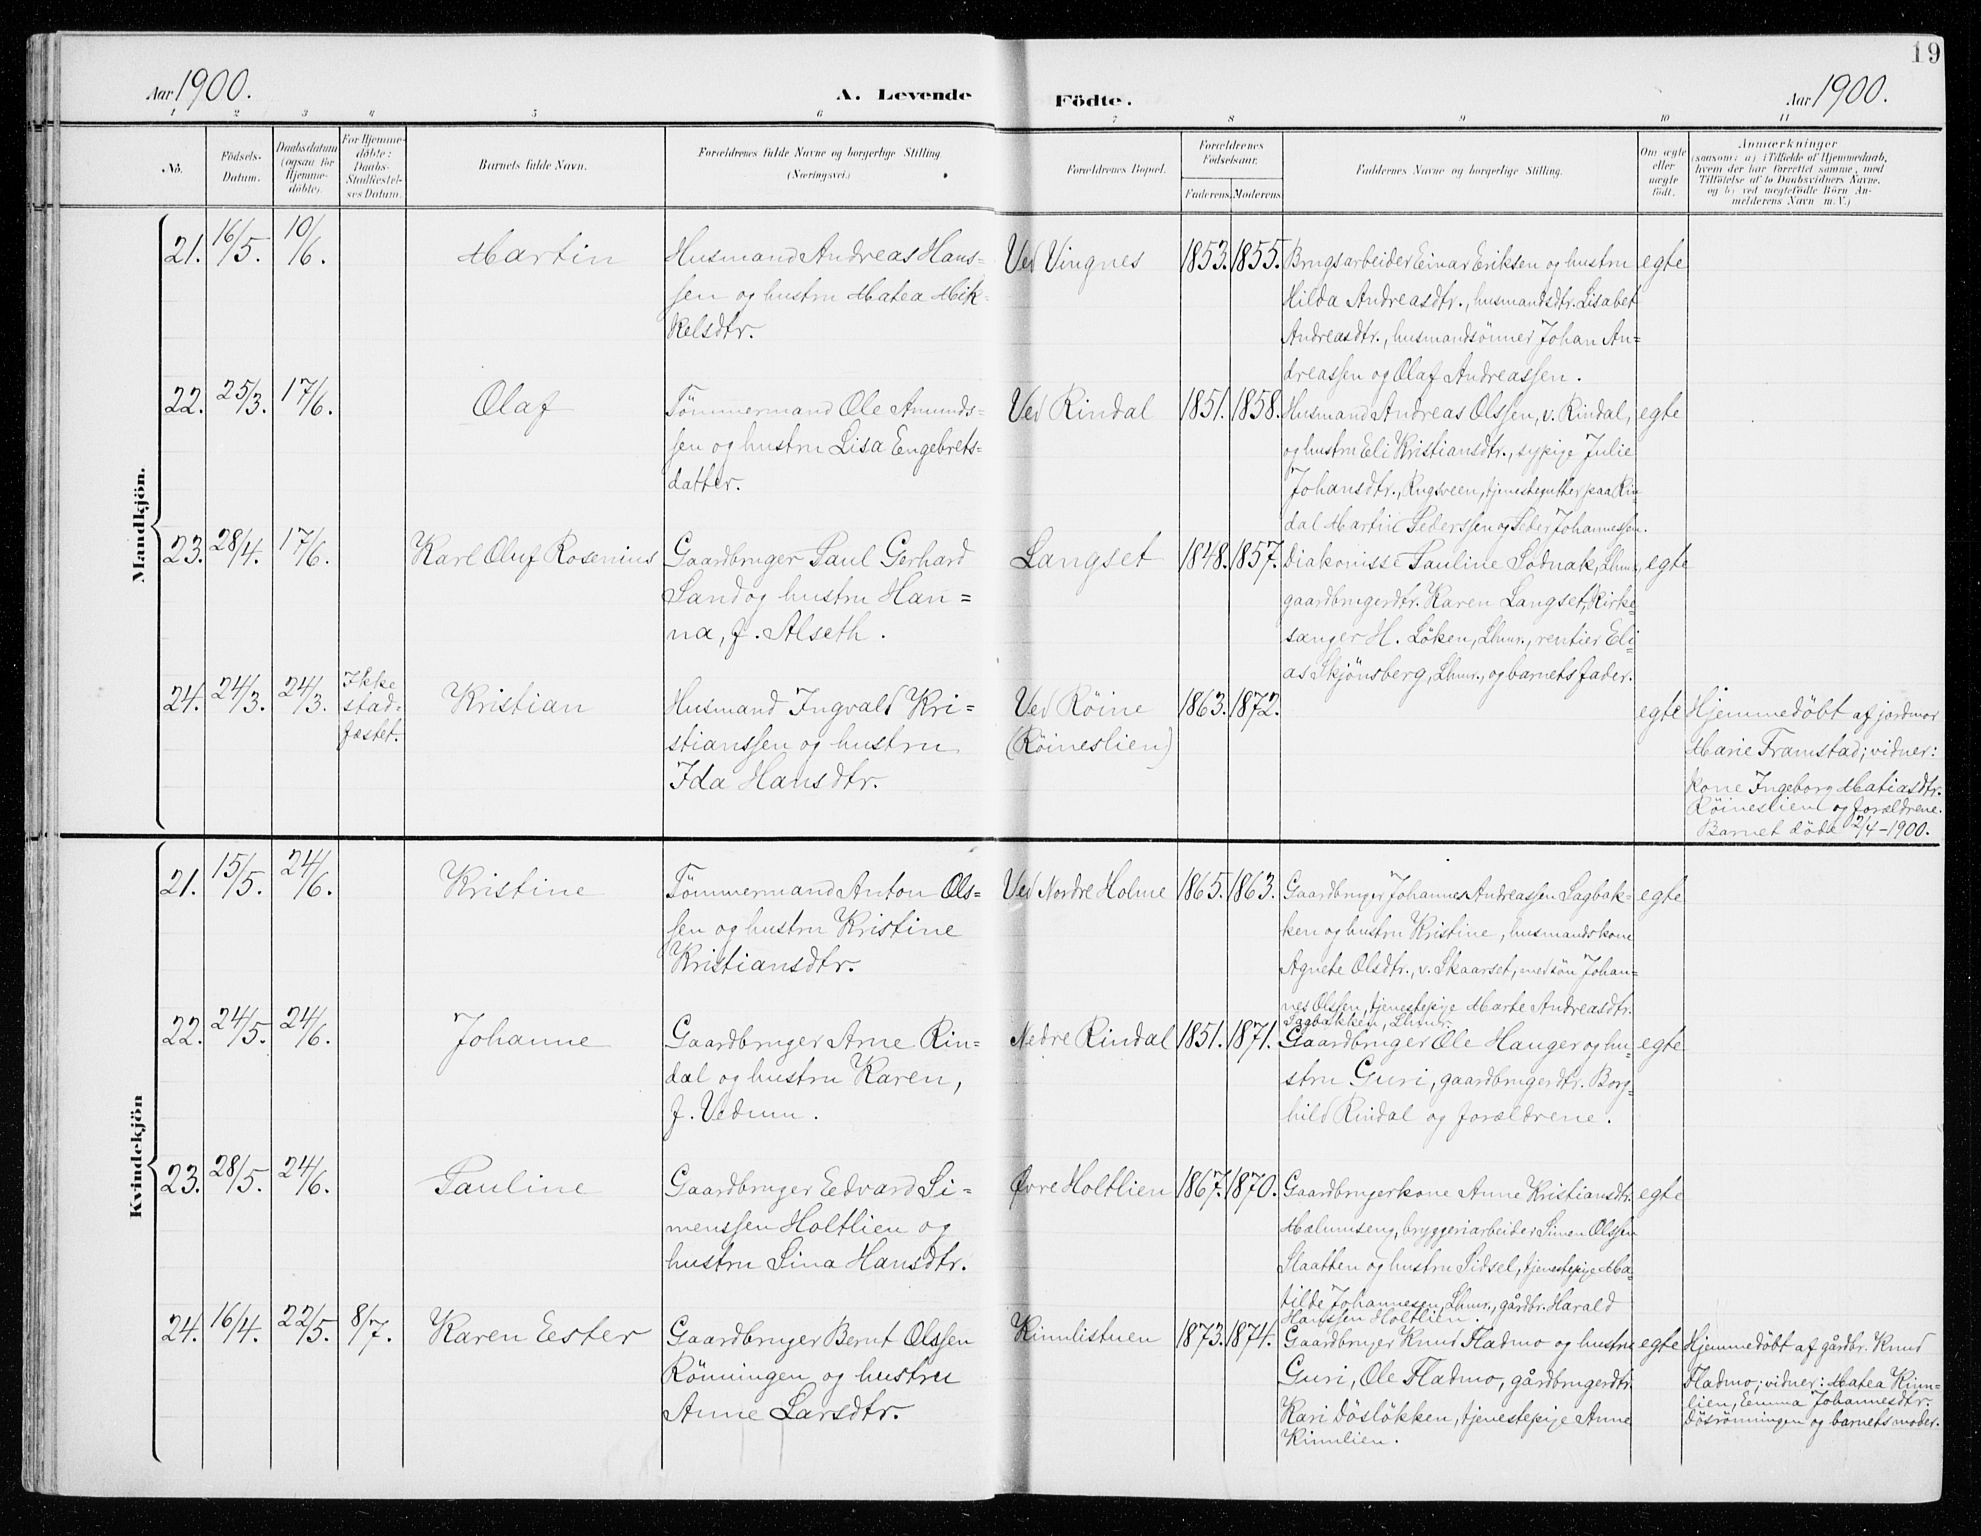 19
Aar 1900.
A. Levende
Födte.
Aar 1900.
1 2 3 4 5 6 7 8 9 10 11
No.
Födsels-
Datum.
Daabsdatum
(ogsaa for
Hjemme-
döbte).
For Hjemme-
döbte:
Daabs-
Stadfæstel-
ses Datum.
Barnets fulde Navn.
Forældrenes fulde Navne og borgerlige Stilling
(Næringsvei.)
Forældrenes Bopæl.
Forældrenes
Födselsaar.
Faderens Moderens
Faddernes Navne og borgerlige Stilling.
Om ægte
eller
uægte
födt.
Anmærkninger
(saasom: a) i Tilfælde af Hjemmedaab,
hvem der har forrettet samme, med
Tilföielse af to Daabsvidners Navne,
og b) ved uegtefödte Börn An-
melderens Navn m. V.)
Mandkjön.
21. 16/5. 10/6.
Martin
Husmand Andreas Hans-
sen og hustru Matea Mik-
kelsdtr.
Ved Vingnes
1853. 1855.
Brugsarbeider Einar Eriksen og hustru
Hilda Andreasdtr., husmandsdtr. Lisabet
Andreasdtr., husmandsönner Johan An-
dreassen og Olaf Andreassen.
egte
22. 25/3. 17/6.
Olaf
Tömmermand Ole Amunds-
sen og hustru Lisa Engebrets-
datter.
Ved Rindal
1851. 1858.
Husmand Andreas Olssen, v. Rindal,
og hustru Eli Kristiansdtr., sypige Julie
Johansdtr., Rugsveen, tjenestegutter paa Rin-
dal Martin Pederssen og Peder Johannessen.
egte
23. 28/4. 17/6.
Karl Oluf Rosenius
Gaardbruger Paul Gerhard
Sand og hustru Han-
na, f. Alseth.
Langset
1848. 1857.
Diakonisse Pauline Sodnak, Lhmr.,
gaardbrugerdtr. Karen Langset, Kirke-
sanger H. Löken, Lhmr., rentier Eli-
as Skjönsberg, Lhmr., og barnets fader.
egte
24. 24/3. 24/3. Ikke
stad-
fæstet.
Kristian
Husmand Ingvald Kri-
stianssen og hustru
Ida Hansdtr.
Ved Röine
(Röineslien)
1863. 1872.
egte
Hjemmedöbt af jordmor
Marie Framstad; vidner:
kone Ingeborg Matiasdtr.
Röineslien og forældrene.
Barnet döde 2/4-1900.
Kvindekjön
21. 15/5. 24/6.
Kristine
Tömmermand Anton Ols-
sen og hustru Kristine
Kristiansdtr.
Ved Nordre Holme
1865. 1863.
Gaardbruger Johannes Andreassen Sagbak-
ken og hustru Kristine, husmandskone
Agnete Olsdtr., v. Skaarset, med sön Johan-
nes Olssen, tjenestepige Marte Andreasdtr.
Sagbakken, Lhmr.
egte
22. 24/5. 24/6.
Johanne
Gaardbruger Arne Rin-
dal og hustru Karen,
f. Vedum.
Nedre Rindal
1851. 1871.
Gaardbruger Ole Hauger og hu-
stru Guri, gaardbrugerdtr. Borg-
hild Rindal og forældrene.
egte
23. 28/5. 24/6.
Pauline
Gaardbruger Edvard Si-
menssen Holtlien og
hustru Sina Hansdtr.
Øvre Holtlien
1867. 1870.
Gaardbrugerkone Anne Kristiansdtr.
Malumseng, bryggeriarbeider Simen Olssen
Slaatten og hustru Sidsel, tjenestepige Ma-
tilde Johannesen, Lhmr., gårdbr. Harald
Hanssen Holtlien.
egte
24. 16/4. 22/5. 8/7.
Karen Eester
Gaardbruger Bernt Olssen
Rönningen og hustru
Anne Larsdtr.
Kinnlistuen
1873. 1874.
Gaardbruger Knud Fladmo og hustru
Guri, Ole Fladmo, gårdbrugerdtr.
Kari Döslökken, tjenestepige Anne
Kinnlien.
egte
Hjemmedöbt af gårdbr. Knud
Fladmo; vidner: Matea Kinn-
lien, Emma Johannesdtr.
Dösrönningen og barnets moder.